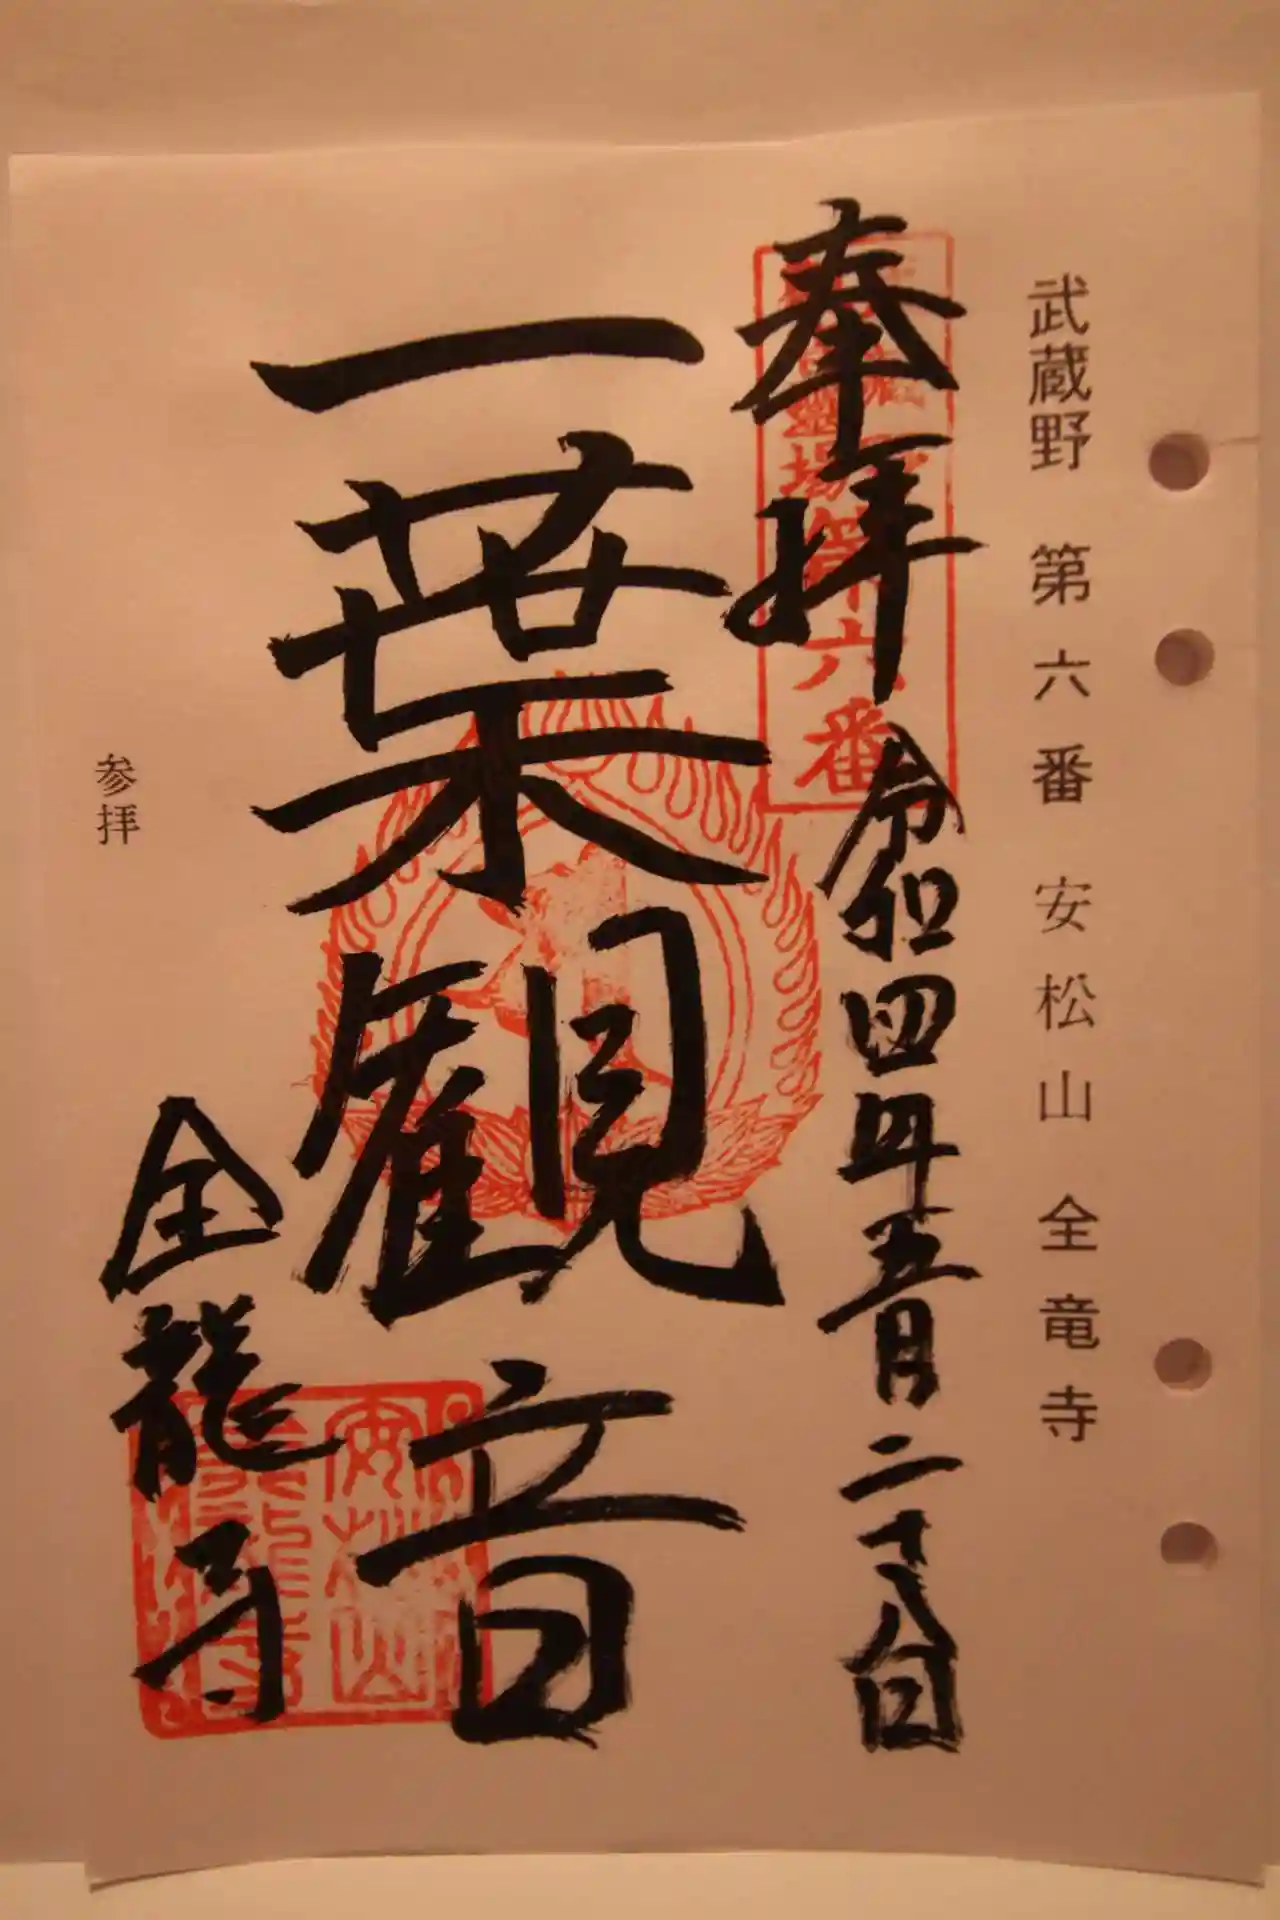 武蔵野 第六番 安松山 全竜寺
奉拝 令和四年五月二十八日
第六番
一葉観音
安松山
全龍寺
参拝